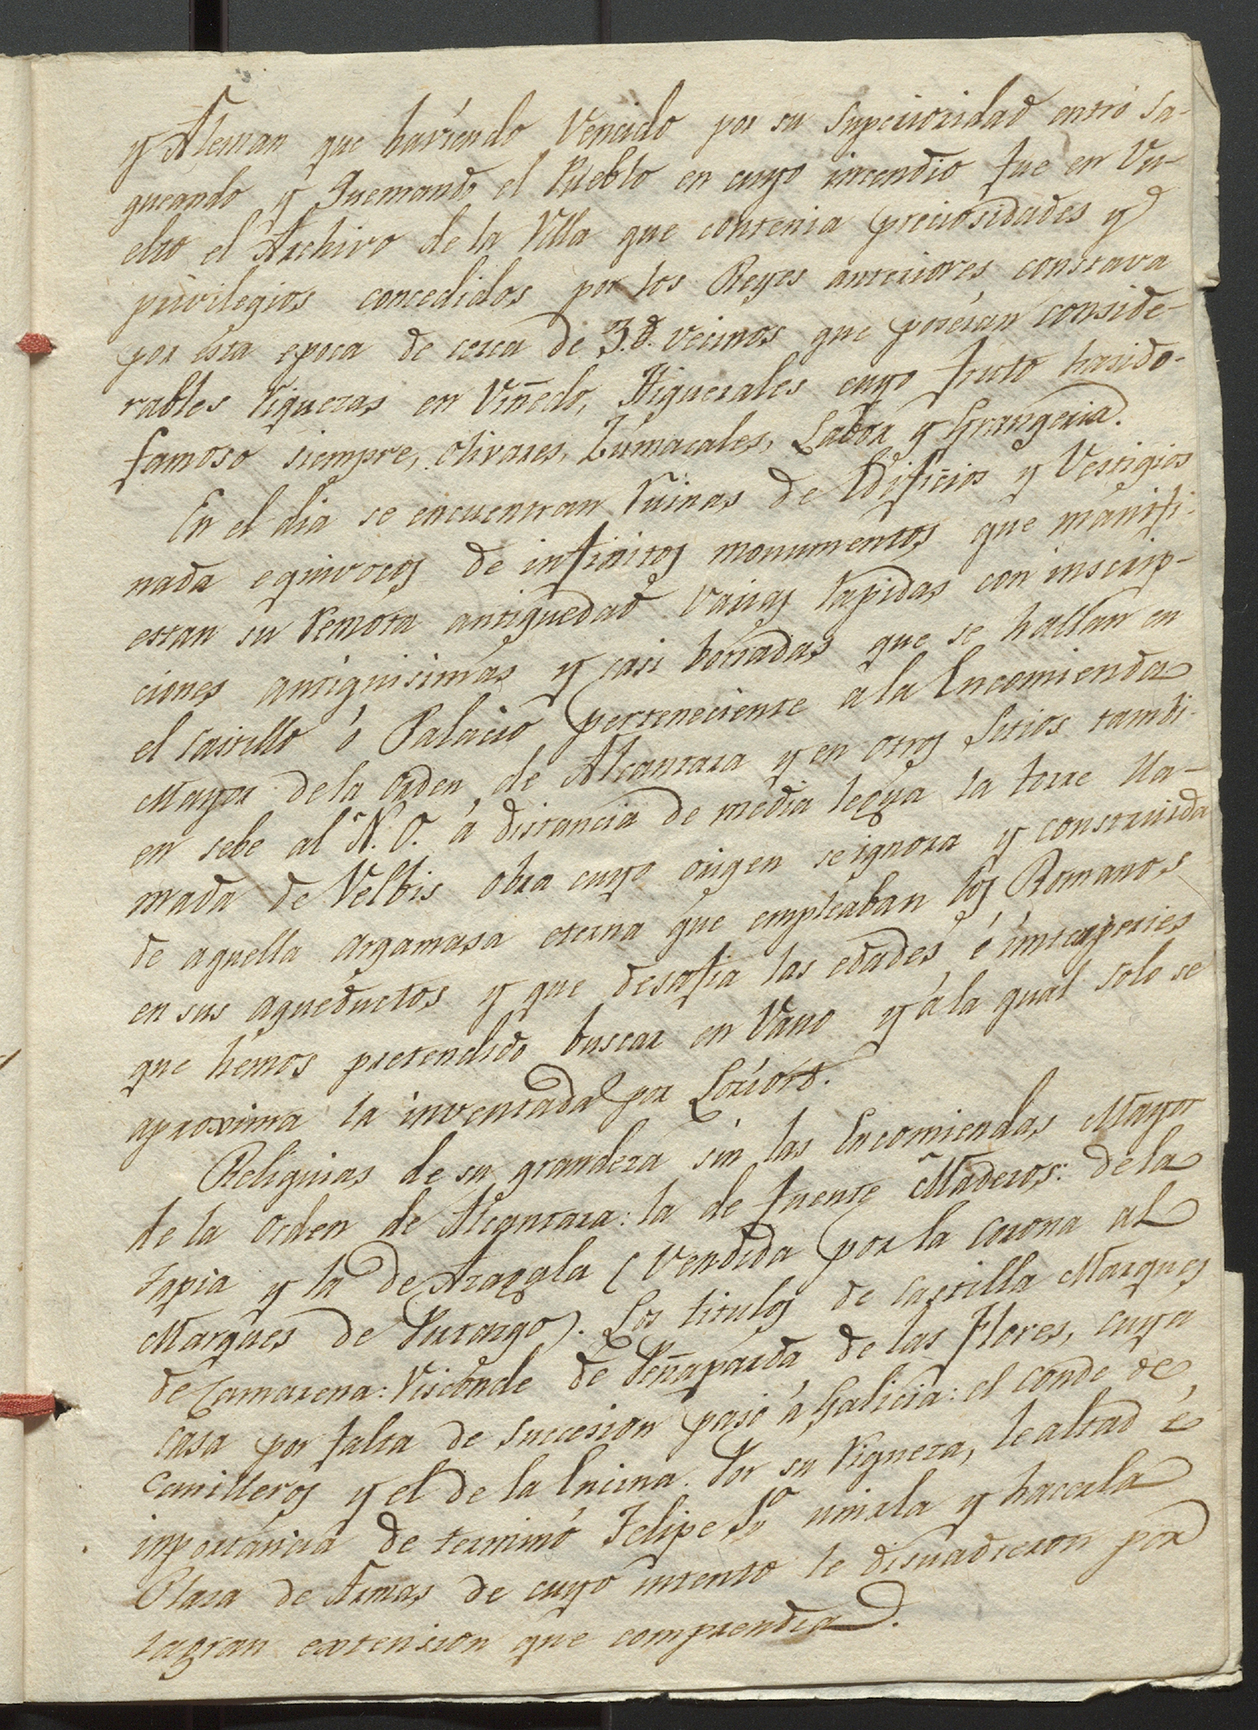 y Aleman que haviendo Vencido por su Superioridad entró sa-
queando y Quemando el Pueblo en cuyo incendio fue en Vu-
elto el Archivo de la Villa que contenia preciosidades y
privilegios concedidos por los Reyes anteriores constava
por esta epoca de cerca de 3.d. vecinos que poseian conside-
rables riquezas en Viñedo, Higuerales cuyo fruto ha sido
famoso siempre, olivares, Zumacales, Labor y Grangeria.
En el dia se encuentran ruinas de Edificios y Vestigios
nada equivocos de infinitos monumentos que manifi-
estan su remota antiguedad varias lapidas con inscrip-
ciones antiquisimas y casi borradas que se hallan en
el Castillo ó Palacio perteneciente a la Encomienda
Mayor de la Orden de Alcantara y en otros sitios tambi-
en sebe al N.O. á distancia de media legua la torre lla-
mada de Velbis obra cuyo origen se ignora y construida
de aquella argamasa eterna que empleaban los Romanos
en sus aqueductos y que desafia las edades é intemperies
que hemos pretendido buscar en Vano y á la qual solo se
aproxima la inventada por Loriots.
Reliquias de su grandeza sin las Encomiendas Mayor
de la Orden de Alcantara: la de fuente Maderos: de la
Tapia y la de Azagala (Vendida por la corona al
Marques de Surazgo). Los titulos de Castilla Marques
de Camarena: Visconde de Peñaparda de las Flores, cuya
casa por falta de succesion pasó á Galicia: el conde de
Canilleros y el de la Encina. Por su riqueza, lealtad é
importancia determinó Felipe 5º unirla y hacerla
Plaza de Armas de cuyo intento le disuadieron por
la gran extension que comprendia.